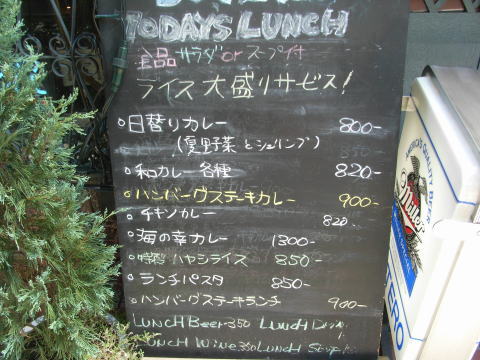 TODAYS LUNCH
全品 サラダ or スープ付
ライス 大盛りサービス!
日替りカレー 800-
(夏野菜とシュリンプ)
和カレー 各種 820-
ハンバーグステーキカレー 900-
チキンカレー 820-
海の幸カレー 1300-
特製ハヤシライス 850-
ランチパスタ 850-
ハンバーグステーキランチ 900-
LUNCH Beer 350 LUNCH
LUNCH Wine 350 LUNCH
Miller